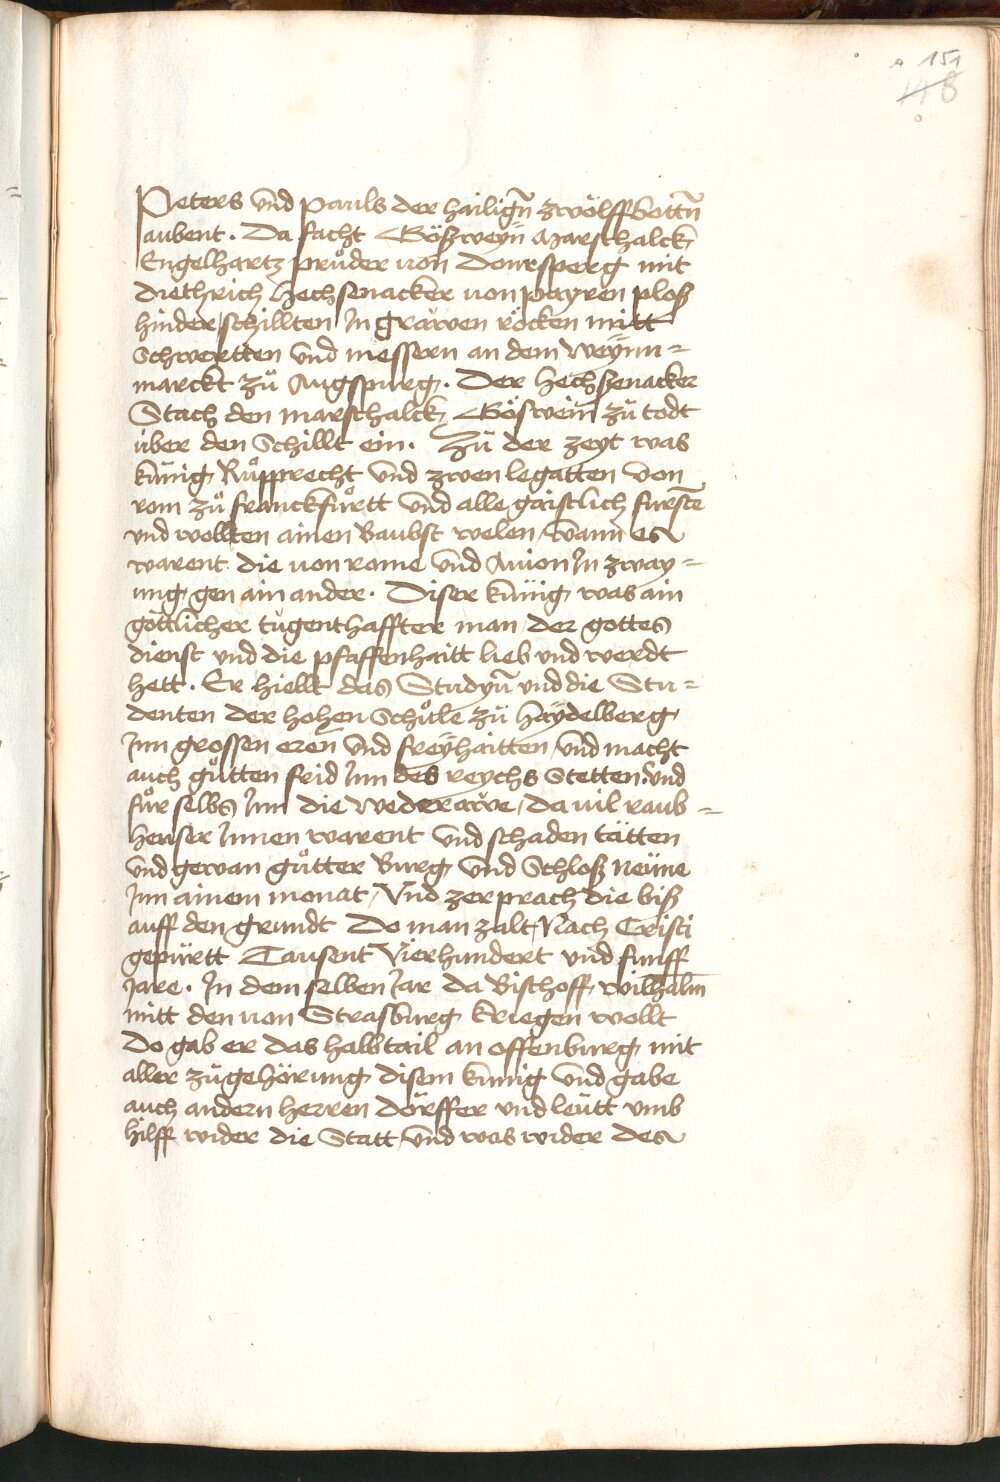 151
148
Peters vnd pauls der hailigñ zwölffbottñ
aubent. Da facht Gößweyn Marschalck
Engelhartz průder von Donrsperg mit
diethrich Hechsenacker von payren ploß
hinder schillten In grawen röcken mitt
Schwertten vnd messern an dem weÿnn=
marckt zů Augspurg. Der Hechssenacker
Stach den marschalck Gößwein zů todt
über den Schillt ein. Zů der zeyt was
künig Růpprecht vnd zwen legatten von
rom zů franckfůrtt vnd alle gaistlich fürstē
vnd wollten ainen Baubst welen, wann es
warent die von rome vnd Auion In zway=
ung gen ain ander. Diser künig was ain
göttlicher tugenthaffter man, der gottes
dienst vnd die pfaffenhaitt lieb vnd werdt
hett. Er hiellt das Studyū vnd die Stu=
denten der hohen Schůle zů Haÿdelberg
Inn grossen eren vnd freÿhaitten, vnd macht
auch gůtten frid Inn des reychs Stetten, vnd
fůr selbs Inn die wederawe, da vil raub=
heuser Innen warent vnd schaden tätten
vnd gewan gůtter Burg vnd Schloß neüne
Inn ainem monat, Vnd zerprach die biß
auff den grundt Do man zalt, Nach Cristi
gepürtt Tausent Vierhundert vnd funff
Jare. In dem selben Jar da Bischoff wilhalm
mitt den von Strasburg kriegen wollt
Do gab er das halbtail an offenburg mit
aller zůgehörung disem künig vnd gabe
auch andern Herren Dörffer vnd leütt vmb
hilff wider die Statt, vnd was wider des